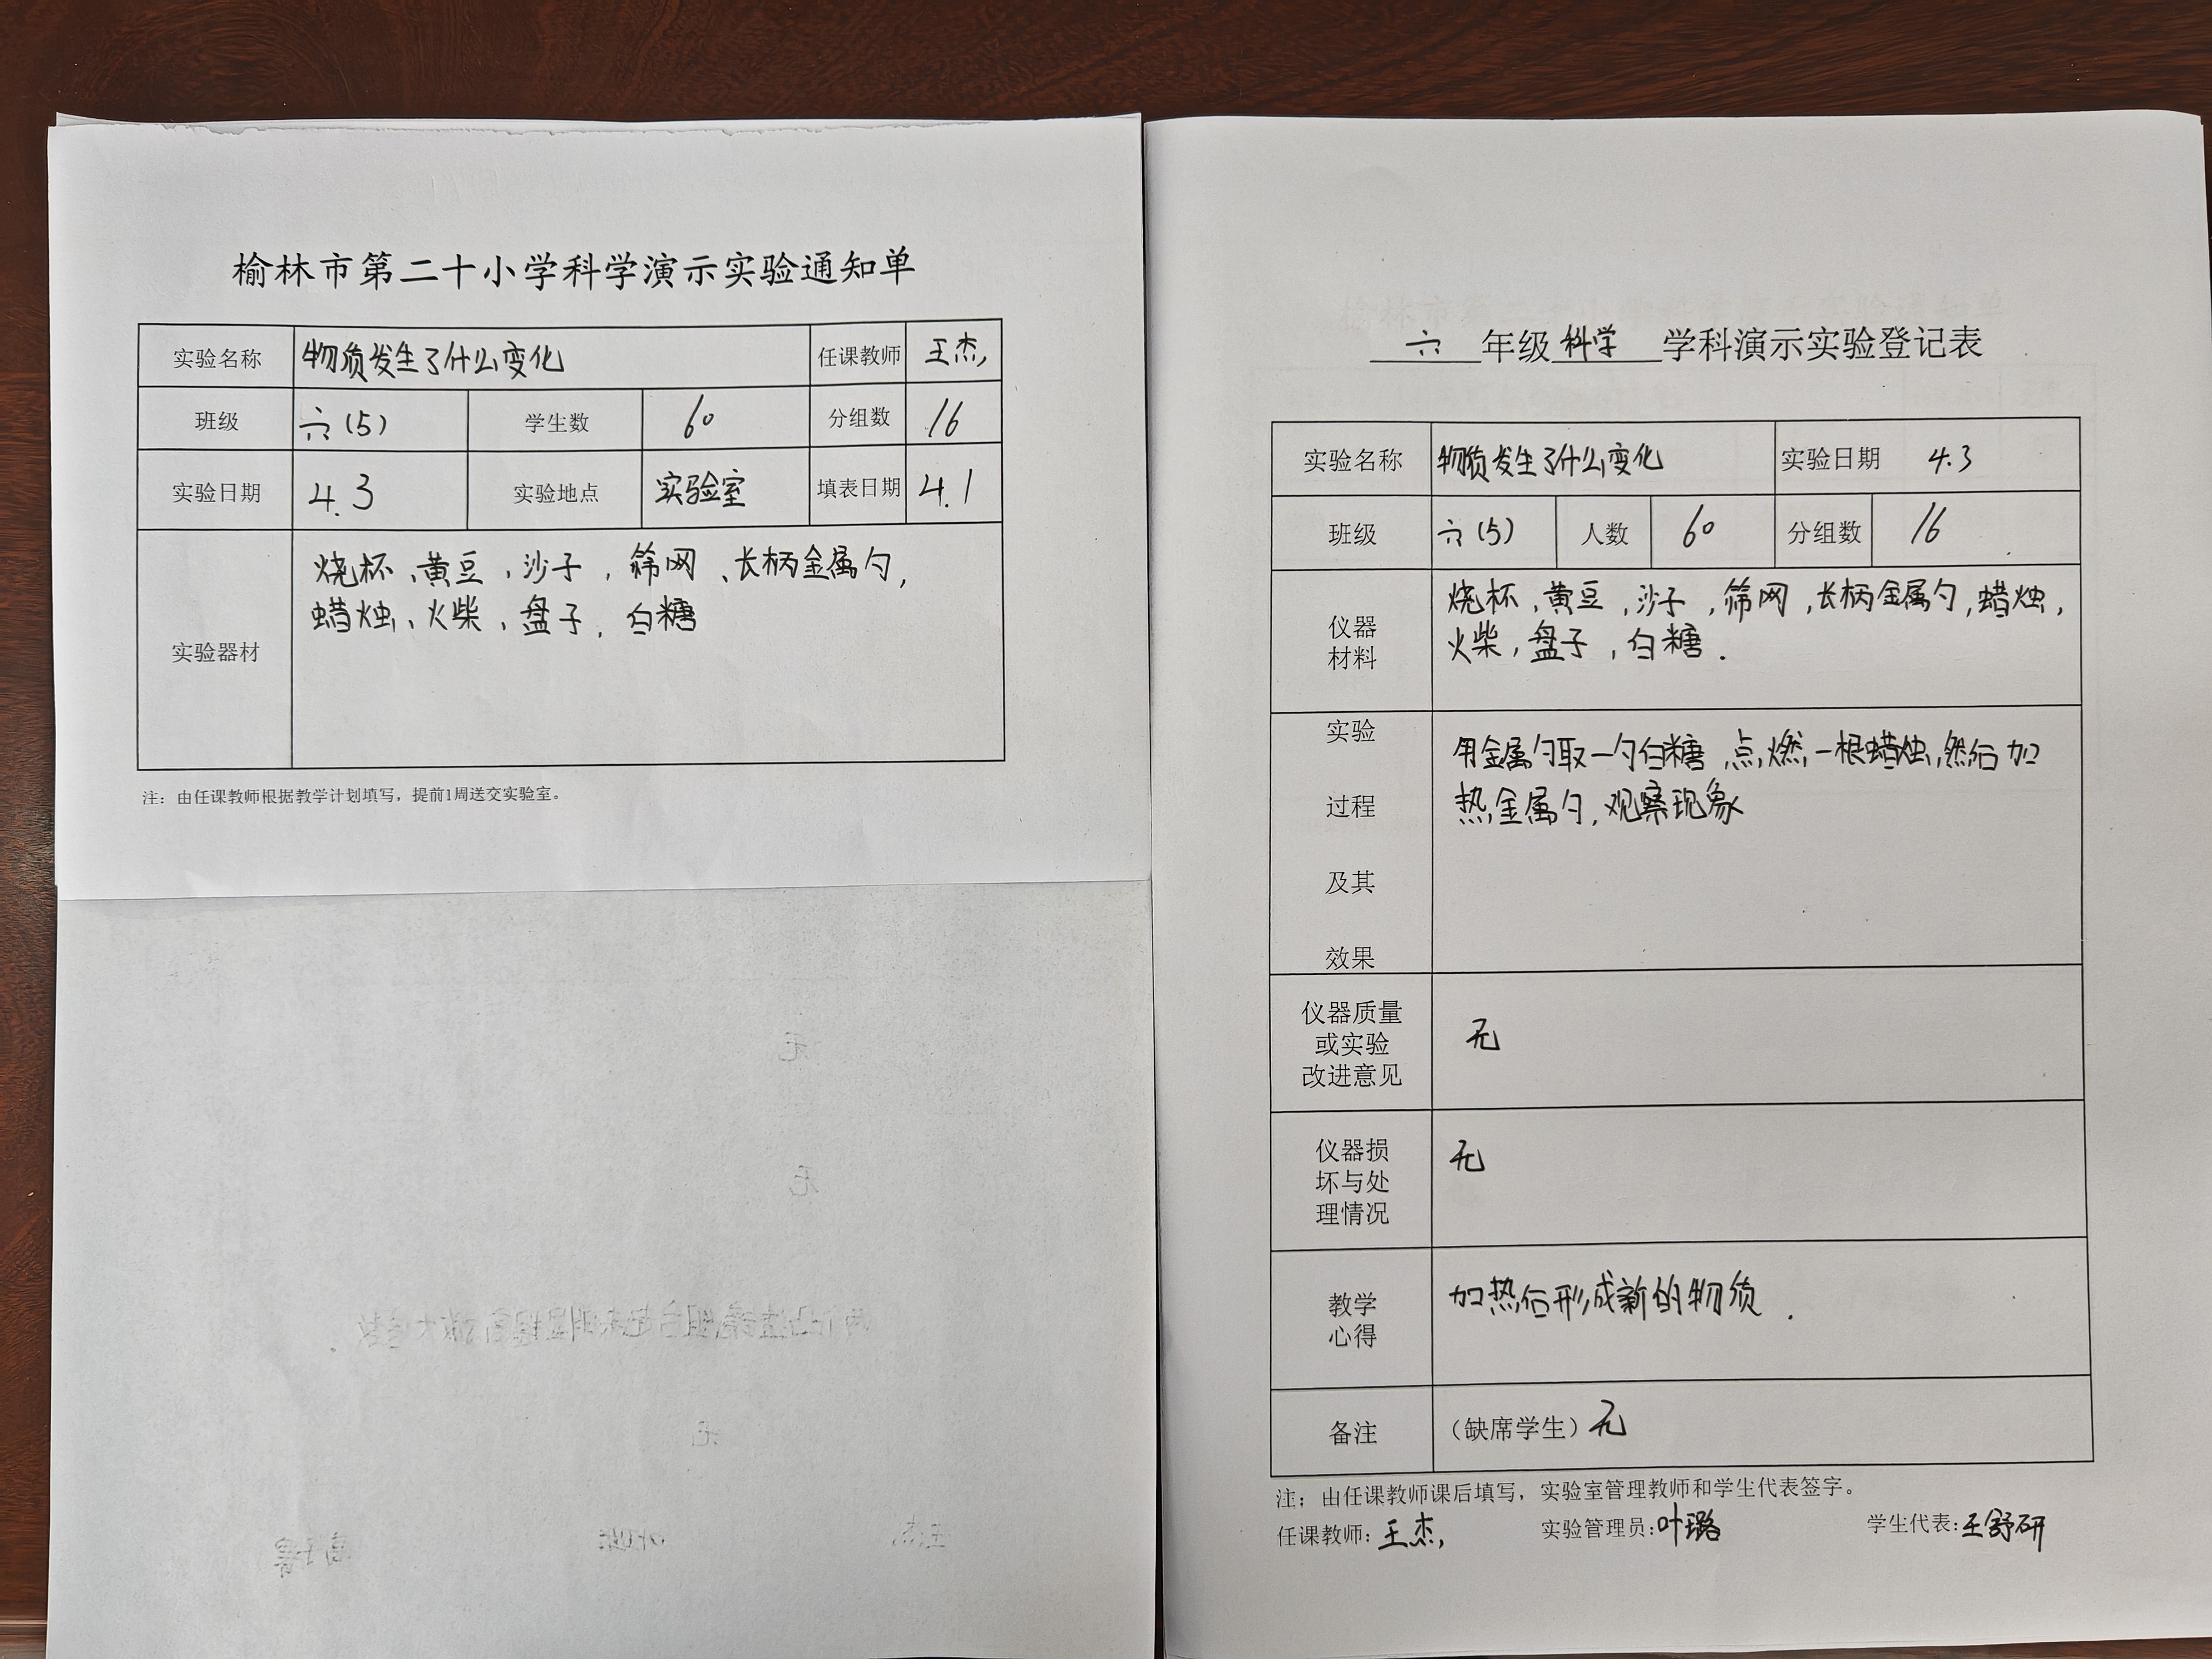 榆林市第二十小学科学演示实验通知单
实验名称 物质发生了什么变化 任课教师 王杰
班级 六(5) 学生数 60 分组数 16
实验日期 4.3 实验地点 实验室 填表日期 4.1
实验器材
烧杯、黄豆,沙子,筛网、长柄金属勺,
蜡烛、火柴、盘子,白糖
注:由任课教师根据教学计划填写,提前1周送交实验室。
六 年级 科学 学科演示实验登记表
实验名称 物质发生了什么变化 实验日期 4.3
班级 六(5) 人数 60 分组数 16
仪器
材料
烧杯,黄豆,沙子,筛网,长柄金属勺,蜡烛,
火柴,盘子,白糖.
实验
过程
及其
效果
用金属勺取一勺白糖,点燃一根蜡烛,然后加
热金属勺,观察现象
仪器质量
或实验
改进意见
无
仪器损
坏与处
理情况
无
教学
心得
加热后形成新的物质.
备注 (缺席学生)无
注:由任课教师课后填写,实验室管理教师和学生代表签字。
任课教师:王杰 实验管理员:叶璐 学生代表:王舒研